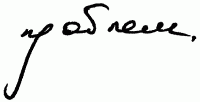 проблем.